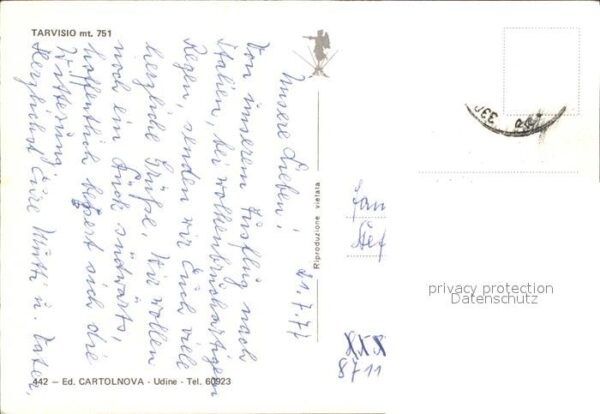 TARVISIO mt. 751
21.7.77
Unsere Lieben!
Von unserem Ausflug nach
Italien, bei wolkenbruchartigen
Regen, senden wir Euch viele
herzliche Grüße. Wir wollen
noch ein Stück südwärts,
hoffentlich bessert sich die
Witterung.
Herzlichst Eure Mutti u. Vater.
Riproduzione vietata
privacy protection
Datenschutz
8711
442 - Ed. CARTOLNOVA - Udine - Tel. 60923